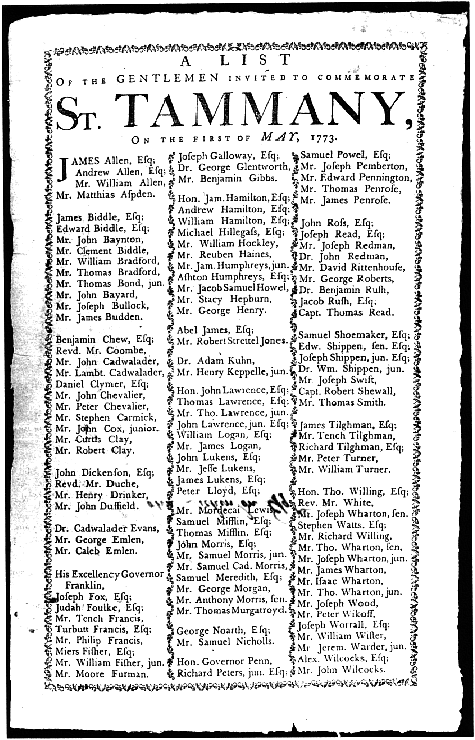 A LIST
OF THE GENTLEMEN INVITED TO COMMEMORATE
ST. TAMMANY,
ON THE FIRST OF MAY, 1773.
JAMES Allen, Esq;
Andrew Allen, Esq;
Mr. William Allen,
Mr. Matthias Aspden.
James Biddle, Esq;
Edward Biddle, Esq;
Mr. John Baynton,
Mr. Clement Biddle,
Mr. William Bradford,
Mr. Thomas Bradford,
Mr. Thomas Bond, jun.
Mr. John Bayard,
Mr. Joseph Bullock,
Mr. James Budden.
Benjamin Chew, Esq;
Revd. Mr. Coombe,
Mr. John Cadwalader,
Mr. Lambt. Cadwalader,
Daniel Clymer, Esq;
Mr. John Chevalier,
Mr. Peter Chevalier,
Mr. Stephen Carmick,
Mr. John Cox, junior.
Mr. Curtis Clay,
Mr. Robert Clay.
John Dickenson, Esq;
Revd. Mr. Duche,
Mr. Henry Drinker,
Mr. John Duffield.
Dr. Cadwalader Evans,
Mr. George Emlen,
Mr. Caleb Emlen.
His Excellency Governor
Franklin,
Joseph Fox, Esq;
Judah Foulke, Esq;
Mr. Tench Francis,
Turbutt Francis, Esq;
Mr. Philip Francis,
Miers Fisher, Esq;
Mr. William Fisher, jun.
Mr. Moore Furman.
Joseph Galloway, Esq;
Dr. George Glentworth,
Mr. Benjamin Gibbs.
Hon. Jam. Hamilton, Esq;
Andrew Hamilton, Esq;
William Hamilton, Esq;
Michael Hillegass, Esq;
Mr. William Hockley,
Mr. Reuben Haines,
Mr. Jam. Humphreys, jun.
Ashton Humphreys, Esq;
Mr. Jacob Samuel Howel,
Mr. Stacy Hepburn,
Mr. George Henry.
Abel James, Esq;
Mr. Robert Strettel Jones.
Dr. Adam Kuhn,
Mr. Henry Keppelle, jun.
Hon. John Lawrence, Esq;
Thomas Lawrence, Esq;
Mr. Tho. Lawrence, jun.
John Lawrence, jun. Esq;
William Logan, Esq;
Mr. James Logan,
John Lukens, Esq;
Mr. Jesse Lukens,
James Lukens, Esq;
Peter Lloyd, Esq;
Mr. Mordecai Lewis.
Samuel Mifflin, Esq;
Thomas Mifflin, Esq;
John Morris, Esq;
Mr. Samuel Morris, jun.
Mr. Samuel Cad. Morris,
Samuel Meredith, Esq;
Mr. George Morgan,
Mr. Anthony Morris, sen.
Mr. Thomas Murgatroyd.
George Noarth, Esq;
Mr. Samuel Nicholls.
Hon. Governor Penn,
Richard Peters, jun. Esq;
Samuel Powell, Esq;
Mr. Joseph Pemberton,
Mr. Edward Pennington,
Mr. Thomas Penrose,
Mr. James Penrose.
John Ross, Esq;
Joseph Read, Esq;
Mr. Joseph Redman,
Dr. John Redman,
Mr. David Rittenhouse,
Mr. George Roberts,
Dr. Benjamin Rush,
Jacob Rush, Esq;
Capt. Thomas Read.
Samuel Shoemaker, Esq;
Edw. Shippen, sen. Esq;
Joseph Shippen, jun. Esq;
Dr. Wm. Shippen, jun.
Mr. Joseph Swift,
Capt. Robert Shewall,
Mr. Thomas Smith.
James Tilghman, Esq;
Mr. Tench Tilghman,
Richard Tilghman, Esq;
Mr. Peter Turner,
Mr. William Turner.
Hon. Tho. Willing, Esq;
Rev. Mr. White,
Mr. Joseph Wharton, sen.
Stephen Watts. Esq;
Mr. Richard Willing,
Mr. Tho. Wharton, sen.
Mr. Joseph Wharton, jun.
Mr. James Wharton,
Mr. Isaac Wharton,
Mr. Tho. Wharton, jun.
Mr. Joseph Wood,
Mr. Peter Wikoff,
Joseph Worrall, Esq;
Mr. William Wister,
Mr Jerem. Warder, jun.
Alex. Wilcocks, Esq;
Mr. John Wilcocks.